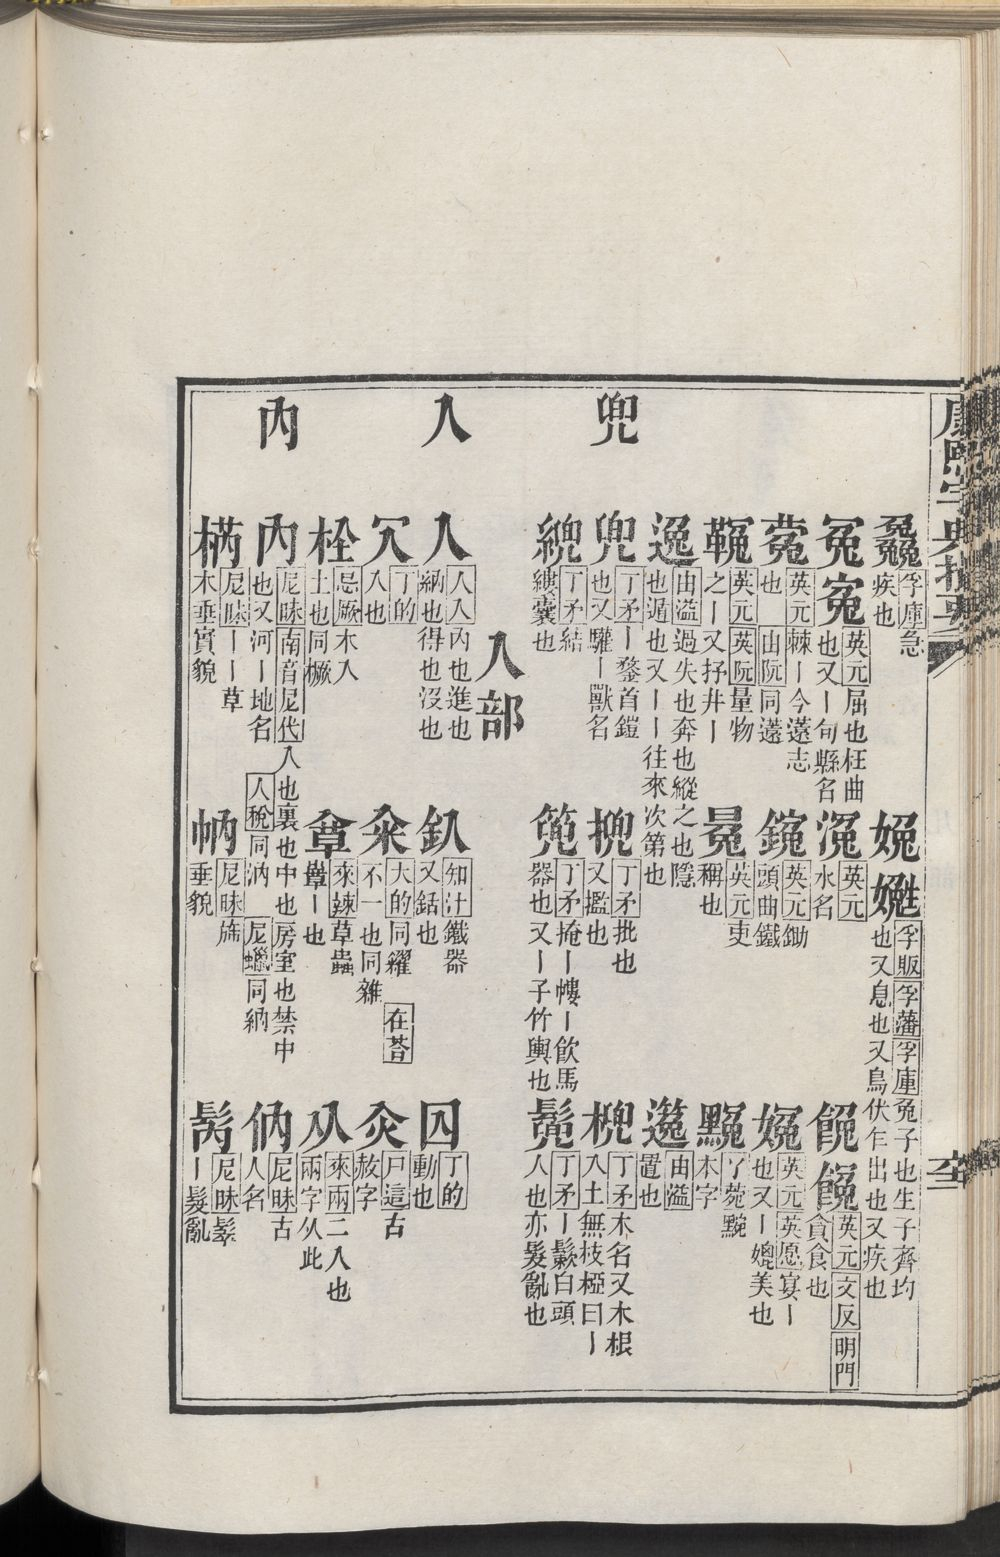 康熙字典撮要
𡙇 孚庫急
疾也
冤寃 英元屈也枉曲
也又｜句縣名
蒬 英元棘｜今薳志
也 山阮同薳
鞔 英元 英阮量物
之｜又抒井｜
逸 由溢過失也奔也縱之也隱
也遁也又｜｜往來次第也
兜 丁矛｜鍪首鎧
也又驩｜獸名
丁矛結
縷囊也
娩 孚販 孚藩 孚庫兔子也生子齊均
也又息也又鳥伏乍出也又疾也
英元
水名
英元鋤
頭曲鐵
英元吏
稱也
丁矛批也
又㩜也
篼 丁矛掩｜幰｜飲馬
器也又｜子竹輿也
英元 文反 明門
貪食也
英元 英愿宴｜
也又｜媲美也
丫菀黦
本字
由溢
置也
丁矛木名又木根
入土無枝椏曰｜
丁矛｜鬏白頭
人也亦髮亂也
兜
入部
入
入 人入內也進也
納也得也沒也
丁的
入也
忌厥木入
土也同橛
內
內 尼昧 南音尼代入也裏也中也房室也禁中
也又河｜地名 人稅同汭 尼蠟同納
尼昧｜｜草
木垂實貌
知汁鐵器
又銛也
籴 大的同糴 在荅
不一也同雜
來辣草蟲
｜也
尼昧旆
垂貌
囚 丁的
動也
尸這古
赦字
从 來兩二入也
兩字从此
尼昧古
人名
尼昧髤
｜髮亂